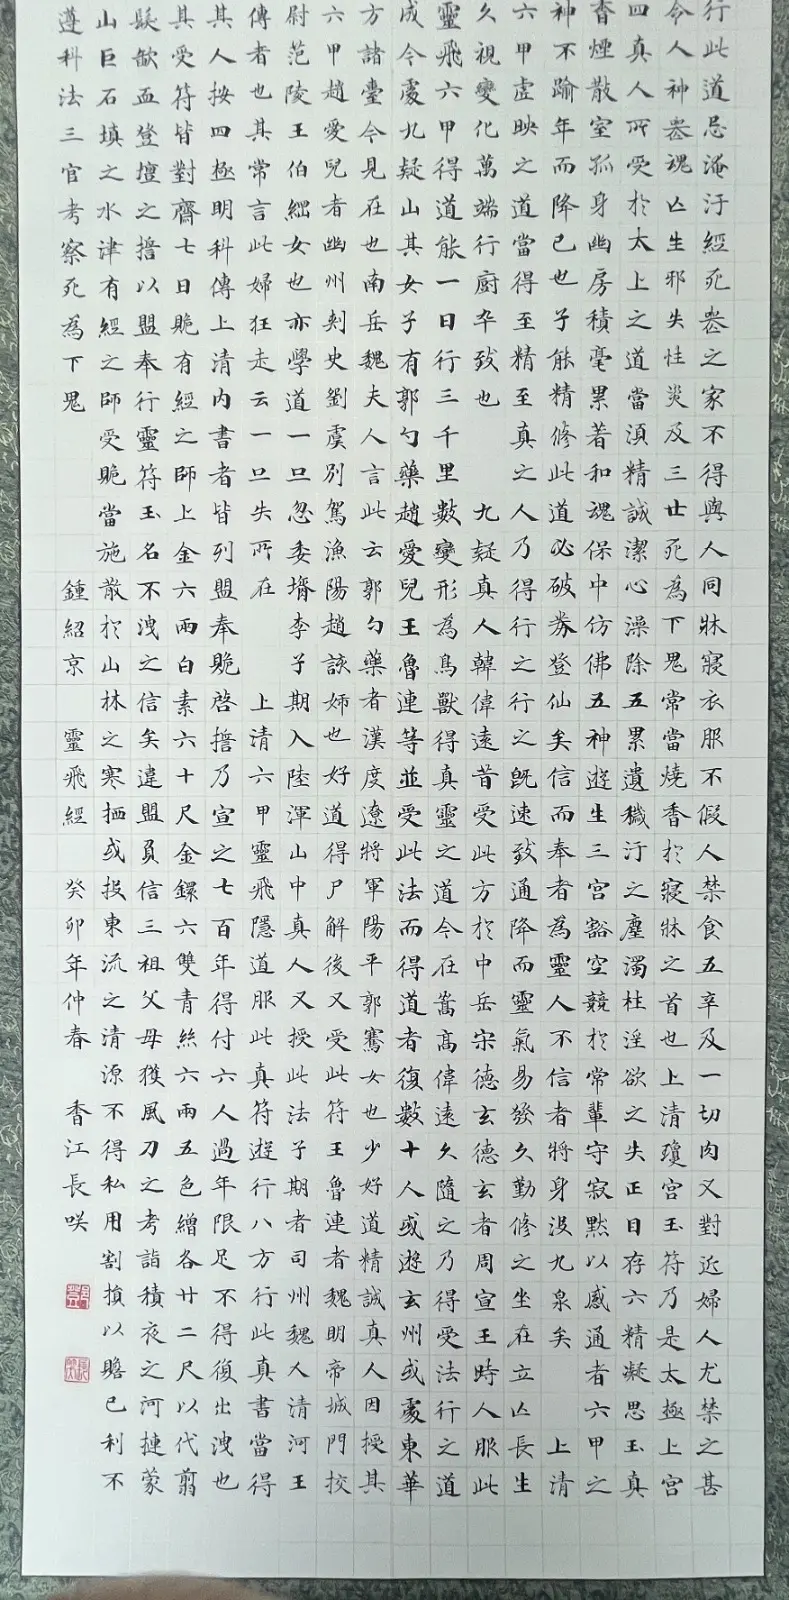 行此道忌淹汙經死喪之家不得與人同牀寢衣服不假人禁食五辛及一切肉又對近婦人尤禁之甚
令人神喪魂亡生邪失性災及三世死為下鬼常當燒香於寢牀之首也上清瓊宮玉符乃是太極上宮
四真人所受於太上之道當須精誠潔心澡除五累遺穢汙之塵濁杜淫欲之失正目存六精凝思玉真
香煙散室孤身幽房積毫累著和魂保中仿佛五神遊生三宮豁空競於常輩守寂默以感通者六甲之
神不踰年而降已也子能精修此道必破券登仙矣信而奉者為靈人不信者將身沒九泉矣 上清
六甲虛映之道當得至精至真之人乃得行之行之既速致通降而靈氣易發久勤修之坐在立亡長生
久視變化萬端行廚卒致也 九疑真人韓偉遠昔受此方於中岳宋德玄德玄者周宣王時人服此
靈飛六甲得道能一日行三千里數變形為鳥獸得真靈之道今在嵩高偉遠久隨之乃得受法行之道
成今處九疑山其女子有郭勺藥趙愛兒王魯連等並受此法而得道者復數十人或遊玄州或處東華
方諸臺今見在也南岳魏夫人言此云郭勺藥者漢度遼將軍陽平郭騫女也少好道精誠真人因授其
六甲趙愛兒者幽州刺史劉虞別駕漁陽趙該姊也好道得尸解後又受此符王魯連者魏明帝城門校
尉范陵王伯綱女也亦學道一旦忽委壻李子期入陸渾山中真人又授此法子期者司州魏人清河王
傳者也其常言此婦狂走云一旦失所在 上清六甲靈飛隱道服此真符遊行八方行此真書當得
其人按四極明科傳上清內書者皆列盟奉貺啓擔乃宣之七百年得付六人過年限足不得復出洩也
其受符皆對齋七日貺有經之師上金六兩白素六十尺金鐶六雙青絲六兩五色繒各廿二尺以代翦
髮歃血登壇之擔以盟奉行靈符玉名不洩之信矣違盟負信三祖父母獲風刀之考詣積夜之河摙蒙
山巨石填之水津有經之師受貺當施散於山林之寒栖或投東流之清源不得私用割損以贍己利不
遵科法三官考察死為下鬼 鍾紹京 靈飛經 癸卯年仲春 香江長咲